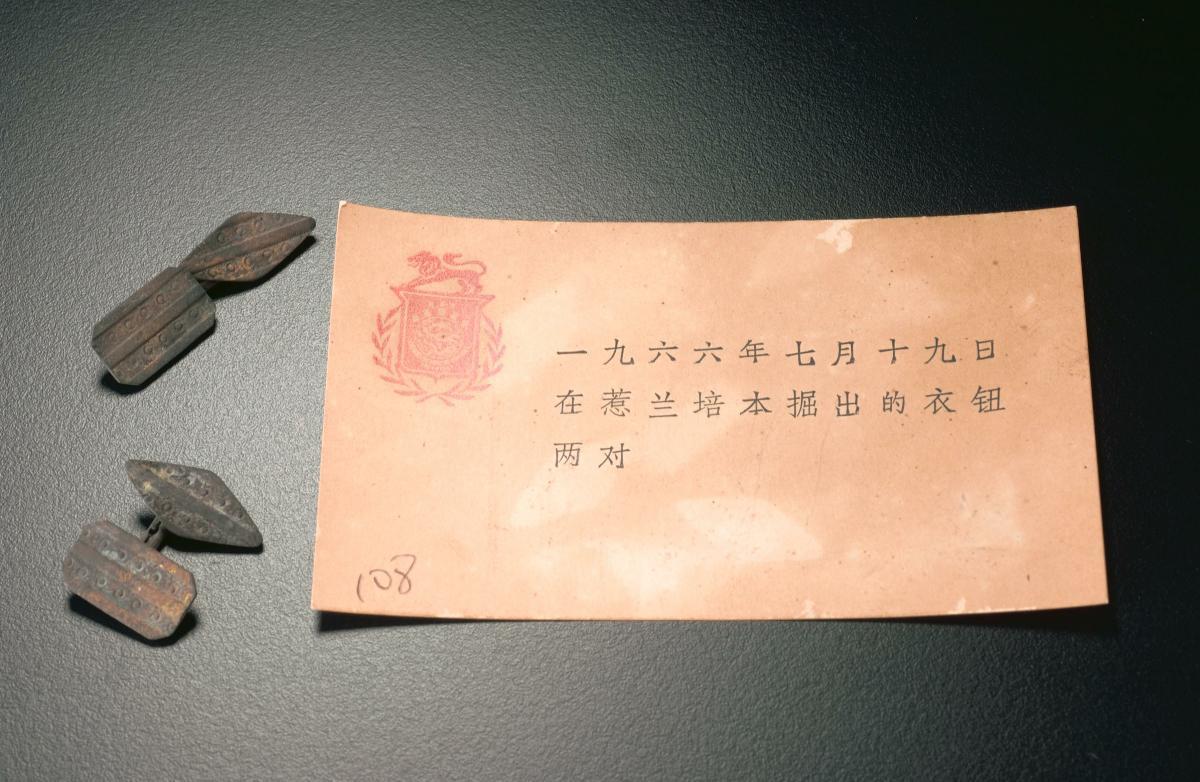 一九六六年七月十九日
在惹兰培本掘出的衣钮
两对
108